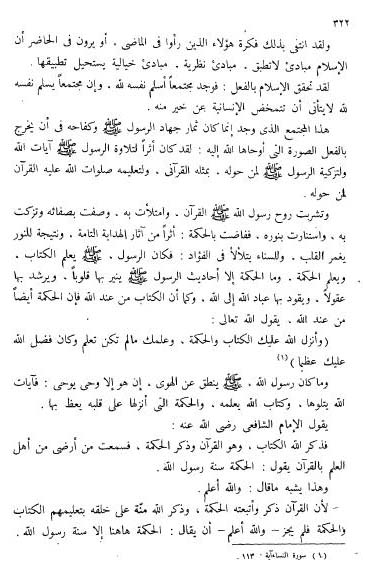 ٣٢٢
ولقد انتفى بذلك فكرة هؤلاء الذين رأوا فى الماضى . أو يرون فى الحاضر أن
الإسلام مبادئ لاتطبق . مبادئ نظرية . مبادئ خيالية يستحيل تطبيقها .
لقد تحقق الإسلام بالفعل : فوجد مجتمعاً أسلم نفسه لله . وإن مجتمعاً يسلم نفسه
لله لايتأنى أن تتمخض الإنسانية عن خير منه .
هذا المجتمع الذى وجد إنما كان ثمار جهاد الرسول ﷺ وكفاحه فى أن يخرج
بالفعل الصورة التى أوحاها الله إليه : لقد كان أثراً لتلاوة الرسول ﷺ آيات الله
ولتزكية الرسول ﷺ لمن حوله . بمثله القرآنى . ولتعليمه صلوات الله عليه القرآن
لمن حوله .
وتشربت روح رسول الله ﷺ القرآن . وامتلأت به . وصفت بصفائه وتزكت
به . واستنارت بنوره . ففاضت بالحكمة : أثراً من آثار الهداية التامة . ونتيجة للنور
يغمر القلب . وللسناء يتلألأ فى الفؤاد : فكان الرسول . ﷺ يعلم الكتاب .
ويعلم الحكمة . وما الحكمة إلا أحاديث الرسول ﷺ ينير بها قلوباً . ويرشد بها
عقولاً . ويقود بها عباد الله إلى الله . وكما أن الكتاب من عند الله فإن الحكمة أيضاً
من عند الله . يقول الله تعالى :
(وأنزل الله عليك الكتاب والحكمة . وعلمك مالم تكن تعلم وكان فضل الله
عليك عظيما) (١)
وماكان رسول الله . ﷺ ينطق عن الهوى . إن هو إلا وحى يوحى : فآيات
الله يتلوها . وكتاب الله يعلمه . والحكمة التى أنزلها على قلبه يعظ بها .
يقول الإمام الشافعى رضى الله عنه :
فذكر الله الكتاب . وهو القرآن وذكر الحكمة . فسمعت من أرضى من أهل
العلم بالقرآن يقول : الحكمة سنة رسول الله .
وهذا يشبه ماقال : والله أعلم .
لأن القرآن ذكر وأتبعته الحكمة . وذكر الله منّه على خلقه بتعليمهم الكتاب
والحكمة فلم يجز – والله أعلم– أن يقال : الحكمة هاهنا إلا سنة رسول الله .
(١) سورة النساءآية ١١٣ .